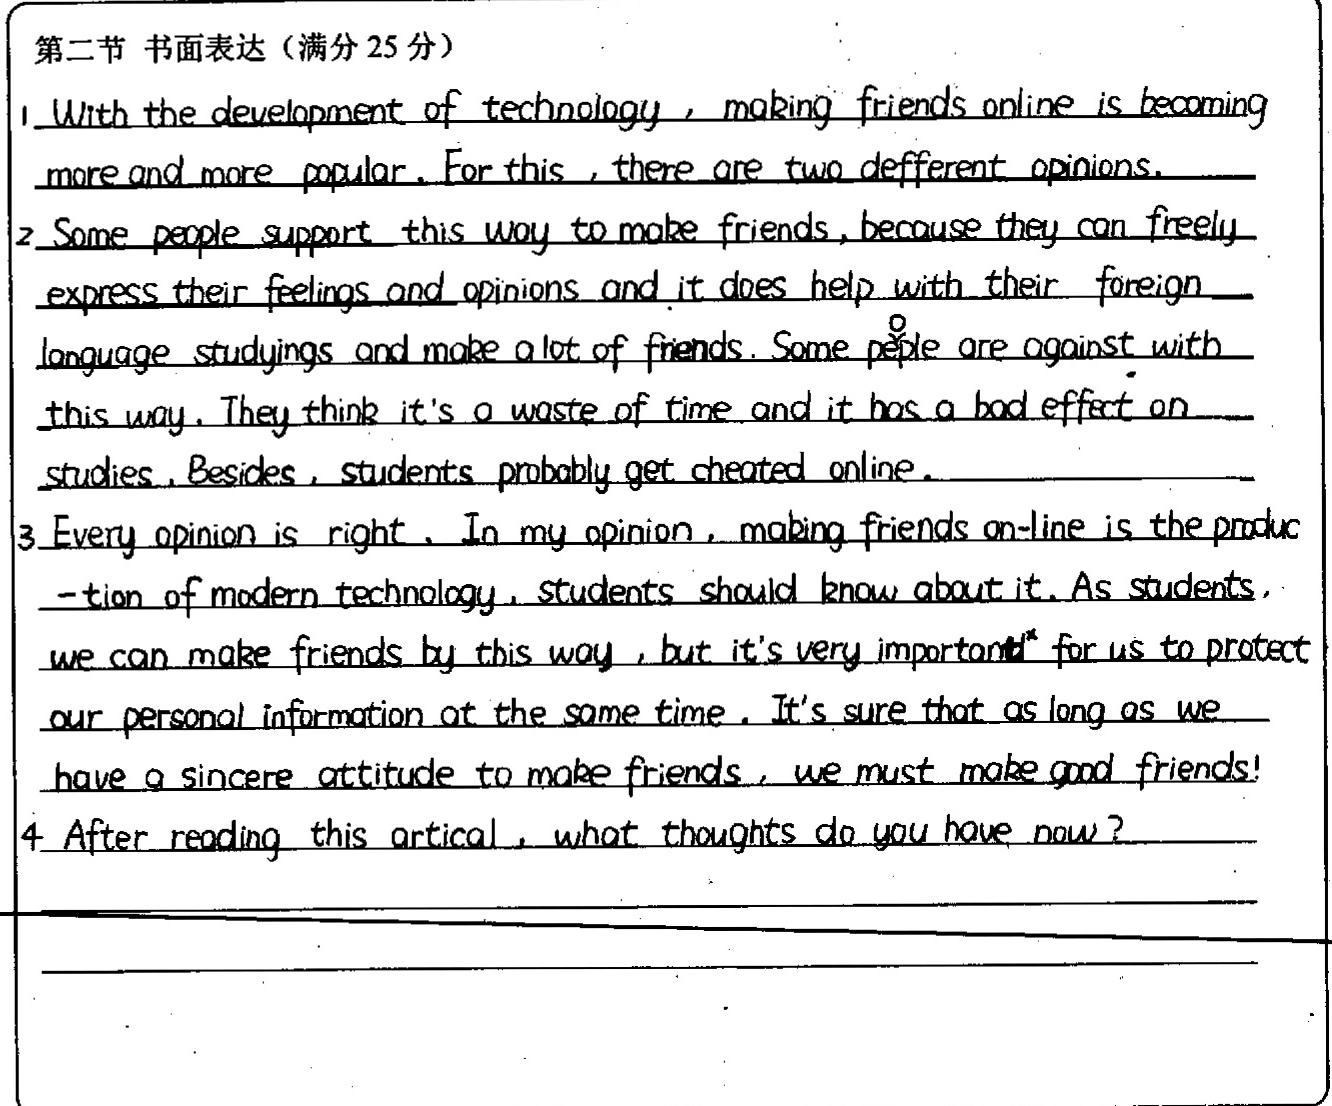 第二节 书面表达（满分 25 分）
1 With the development of technology, making friends online is becoming
more and more popular. For this, there are two defferent opinions.
2 Some people support this way to make friends, because they can freely
express their feelings and opinions and it does help with their foreign
language studyings and make a lot of friends. Some people are against with
this way. They think it's a waste of time and it has a bad effect on
studies, Besides, students probably get cheated online.
3 Every opinion is right. In my opinion, making friends on-line is the produc
-tion of modern technology, students should know about it. As students,
we can make friends by this way, but it's very important for us to protect
our personal information at the same time. It's sure that as long as we
have a sincere attitude to make friends, we must make good friends!
4 After reading this artical, what thoughts do you have now?